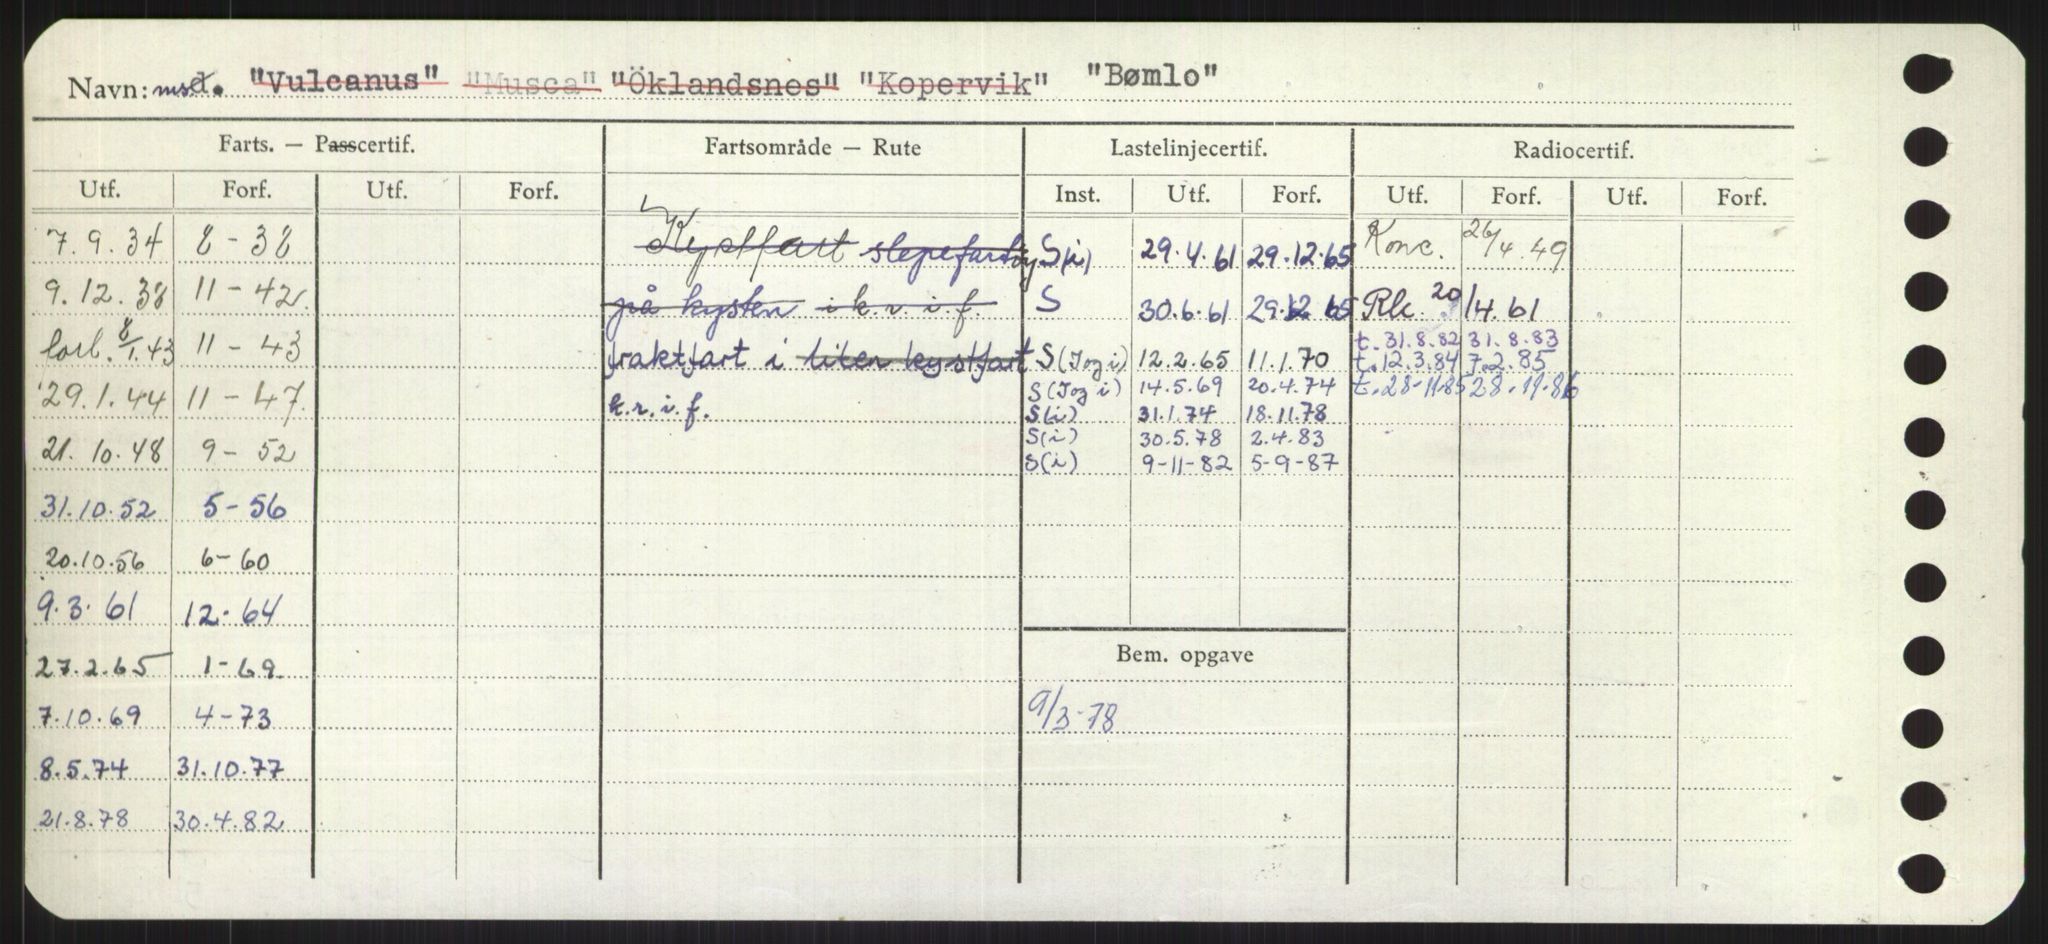 Navn: "Vulcanus" "Musca" "Öklandsnes" "Kopervik" "Bømlo"
Farts. — Passcertif. Fartsområde — Rute Lastelinjecertif. Radiocertif.
Utf. Forf. Utf. Forf. Inst. Utf. Forf. Utf. Forf. Utf. Forf.
7.9.34 8-38 Kystfart slepefartøy S(i) 29.4.61 29.12.65 Konc. 26/4.49
9.12.38 11-42. på kysten i k.r.i.f. S 30.6.61 29.12.65 Rk. 20/4.61
t. 31.8.82 31.8.83
forl. 8/1.43 11-43 fraktfart i liten kystfart S(I og i) 12.2.65 11.1.70 t. 12.3.84 7.2.85
29.1.44 11-47. k.r.i.f. S(I og i) 14.5.69 20.4.74 t. 28-11-85 28-11-86
S(i) 31.1.74 18.11.78
21.10.48 9-52 S(i) 30.5.78 2.4.83
S(i) 9-11-82 5-9-87
31.10.52 5-56
20.10.56 6-60
9.3.61 12-64
27.2.65 1-69 Bem. opgave
7.10.69 4-73 9/3-78
8.5.74 31.10.77
21.8.78 30.4.82